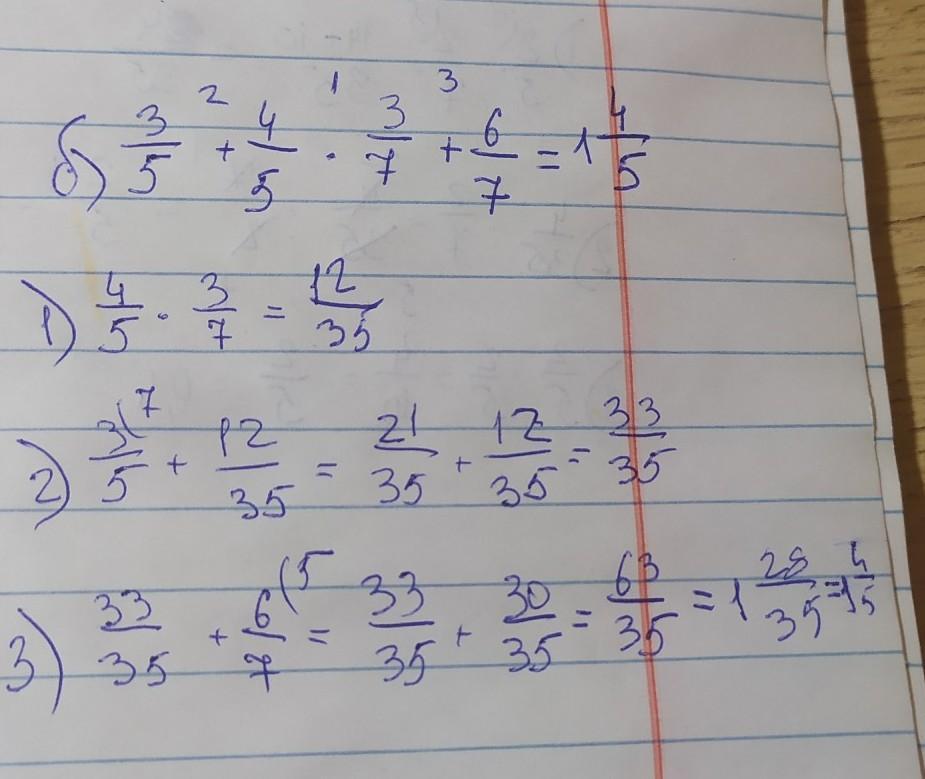 2 1 3
б) 3/5 + 4/5 · 3/7 + 6/7 = 1 4/5
1) 4/5 · 3/7 = 12/35
2) 3(7/5 + 12/35 = 21/35 + 12/35 = 33/35
3) 33/35 + 6(5/7 = 33/35 + 30/35 = 63/35 = 1 28/35 = 1 4/5